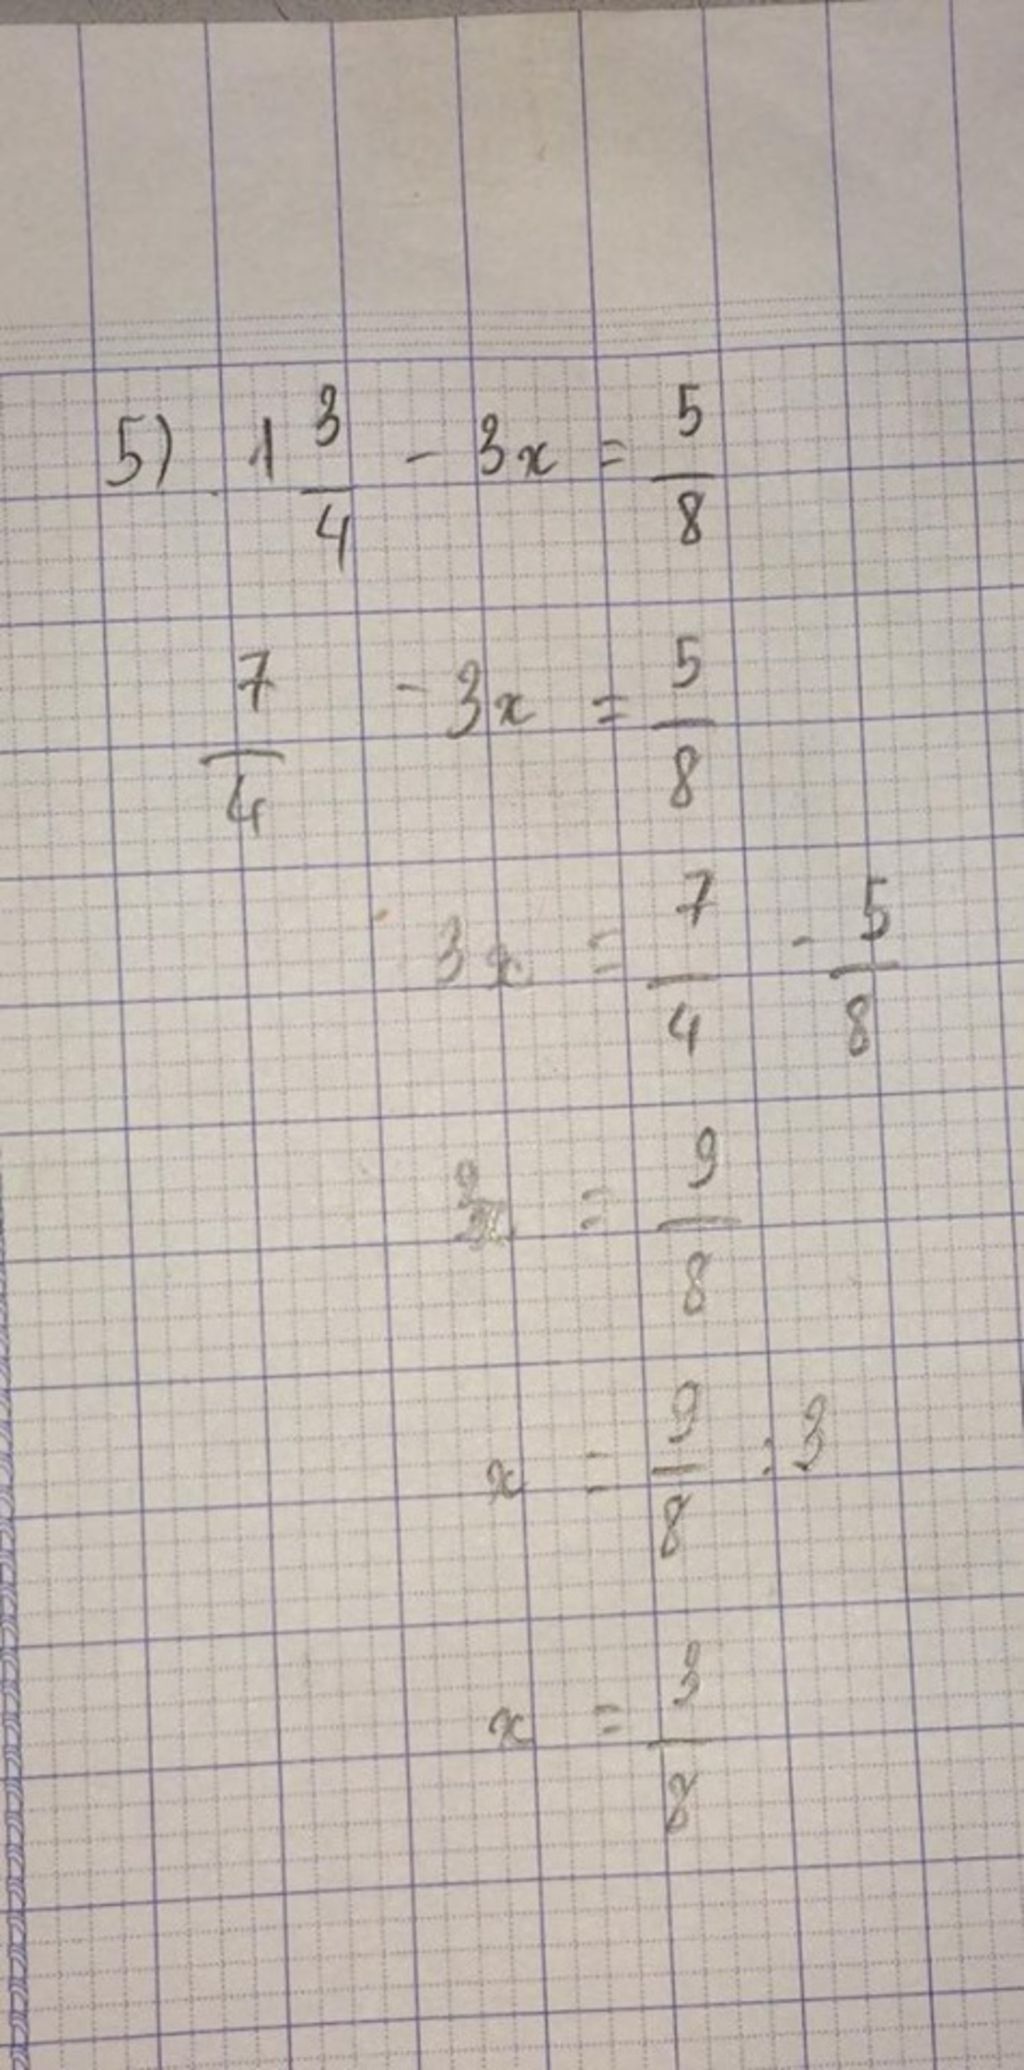 5) 1 3/4 - 3x = 5/8
7/4 - 3x = 5/8
3x = 7/4 - 5/8
3x = 9/8
x = 9/8 : 3
x = 3/8